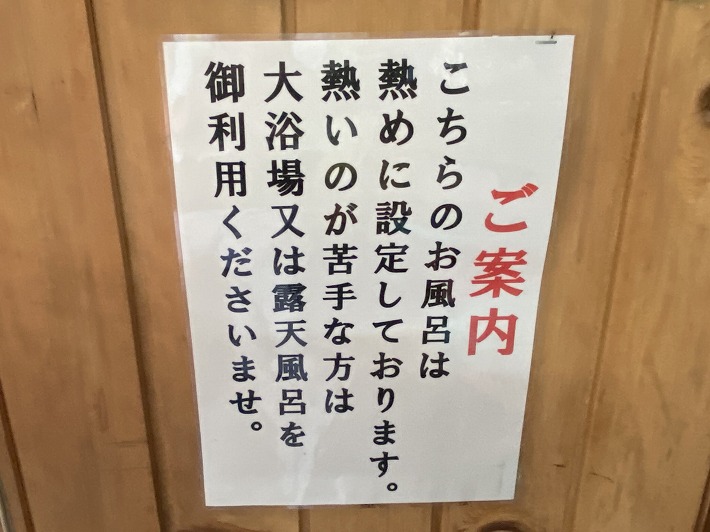 ご案内
こちらのお風呂は
熱めに設定しております。
熱いのが苦手な方は
大浴場又は露天風呂を
御利用くださいませ。